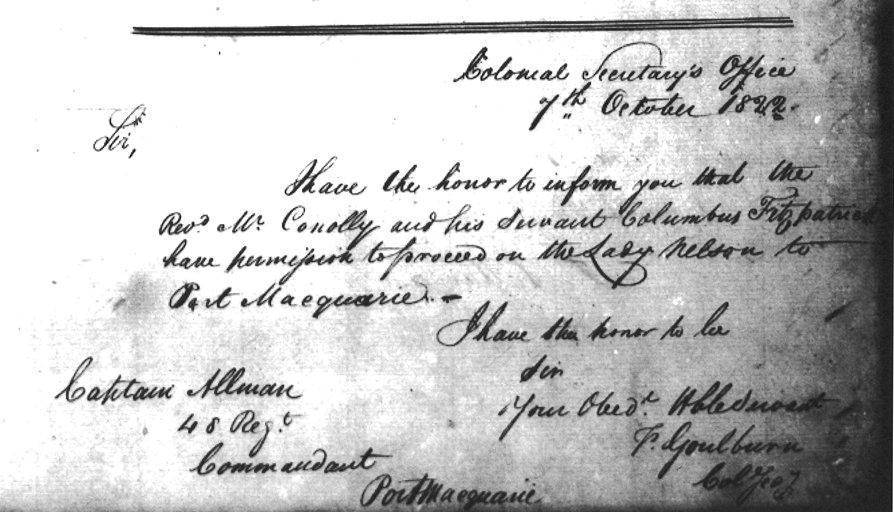 Colonial Secretary's Office
7th October 1822.
Sir,
I have the honor to inform you that the
Revd. Mr. Conolly and his Servant Columbus Fitzpatrick
have permission to proceed on the Lady Nelson to
Port Macquarie. -
I have the honor to be
Sir
Your Obedt. Hble Servant
F. Goulburn
Col Secy
Captain Allman
48 Regt.
Commandant
Port Macquarie